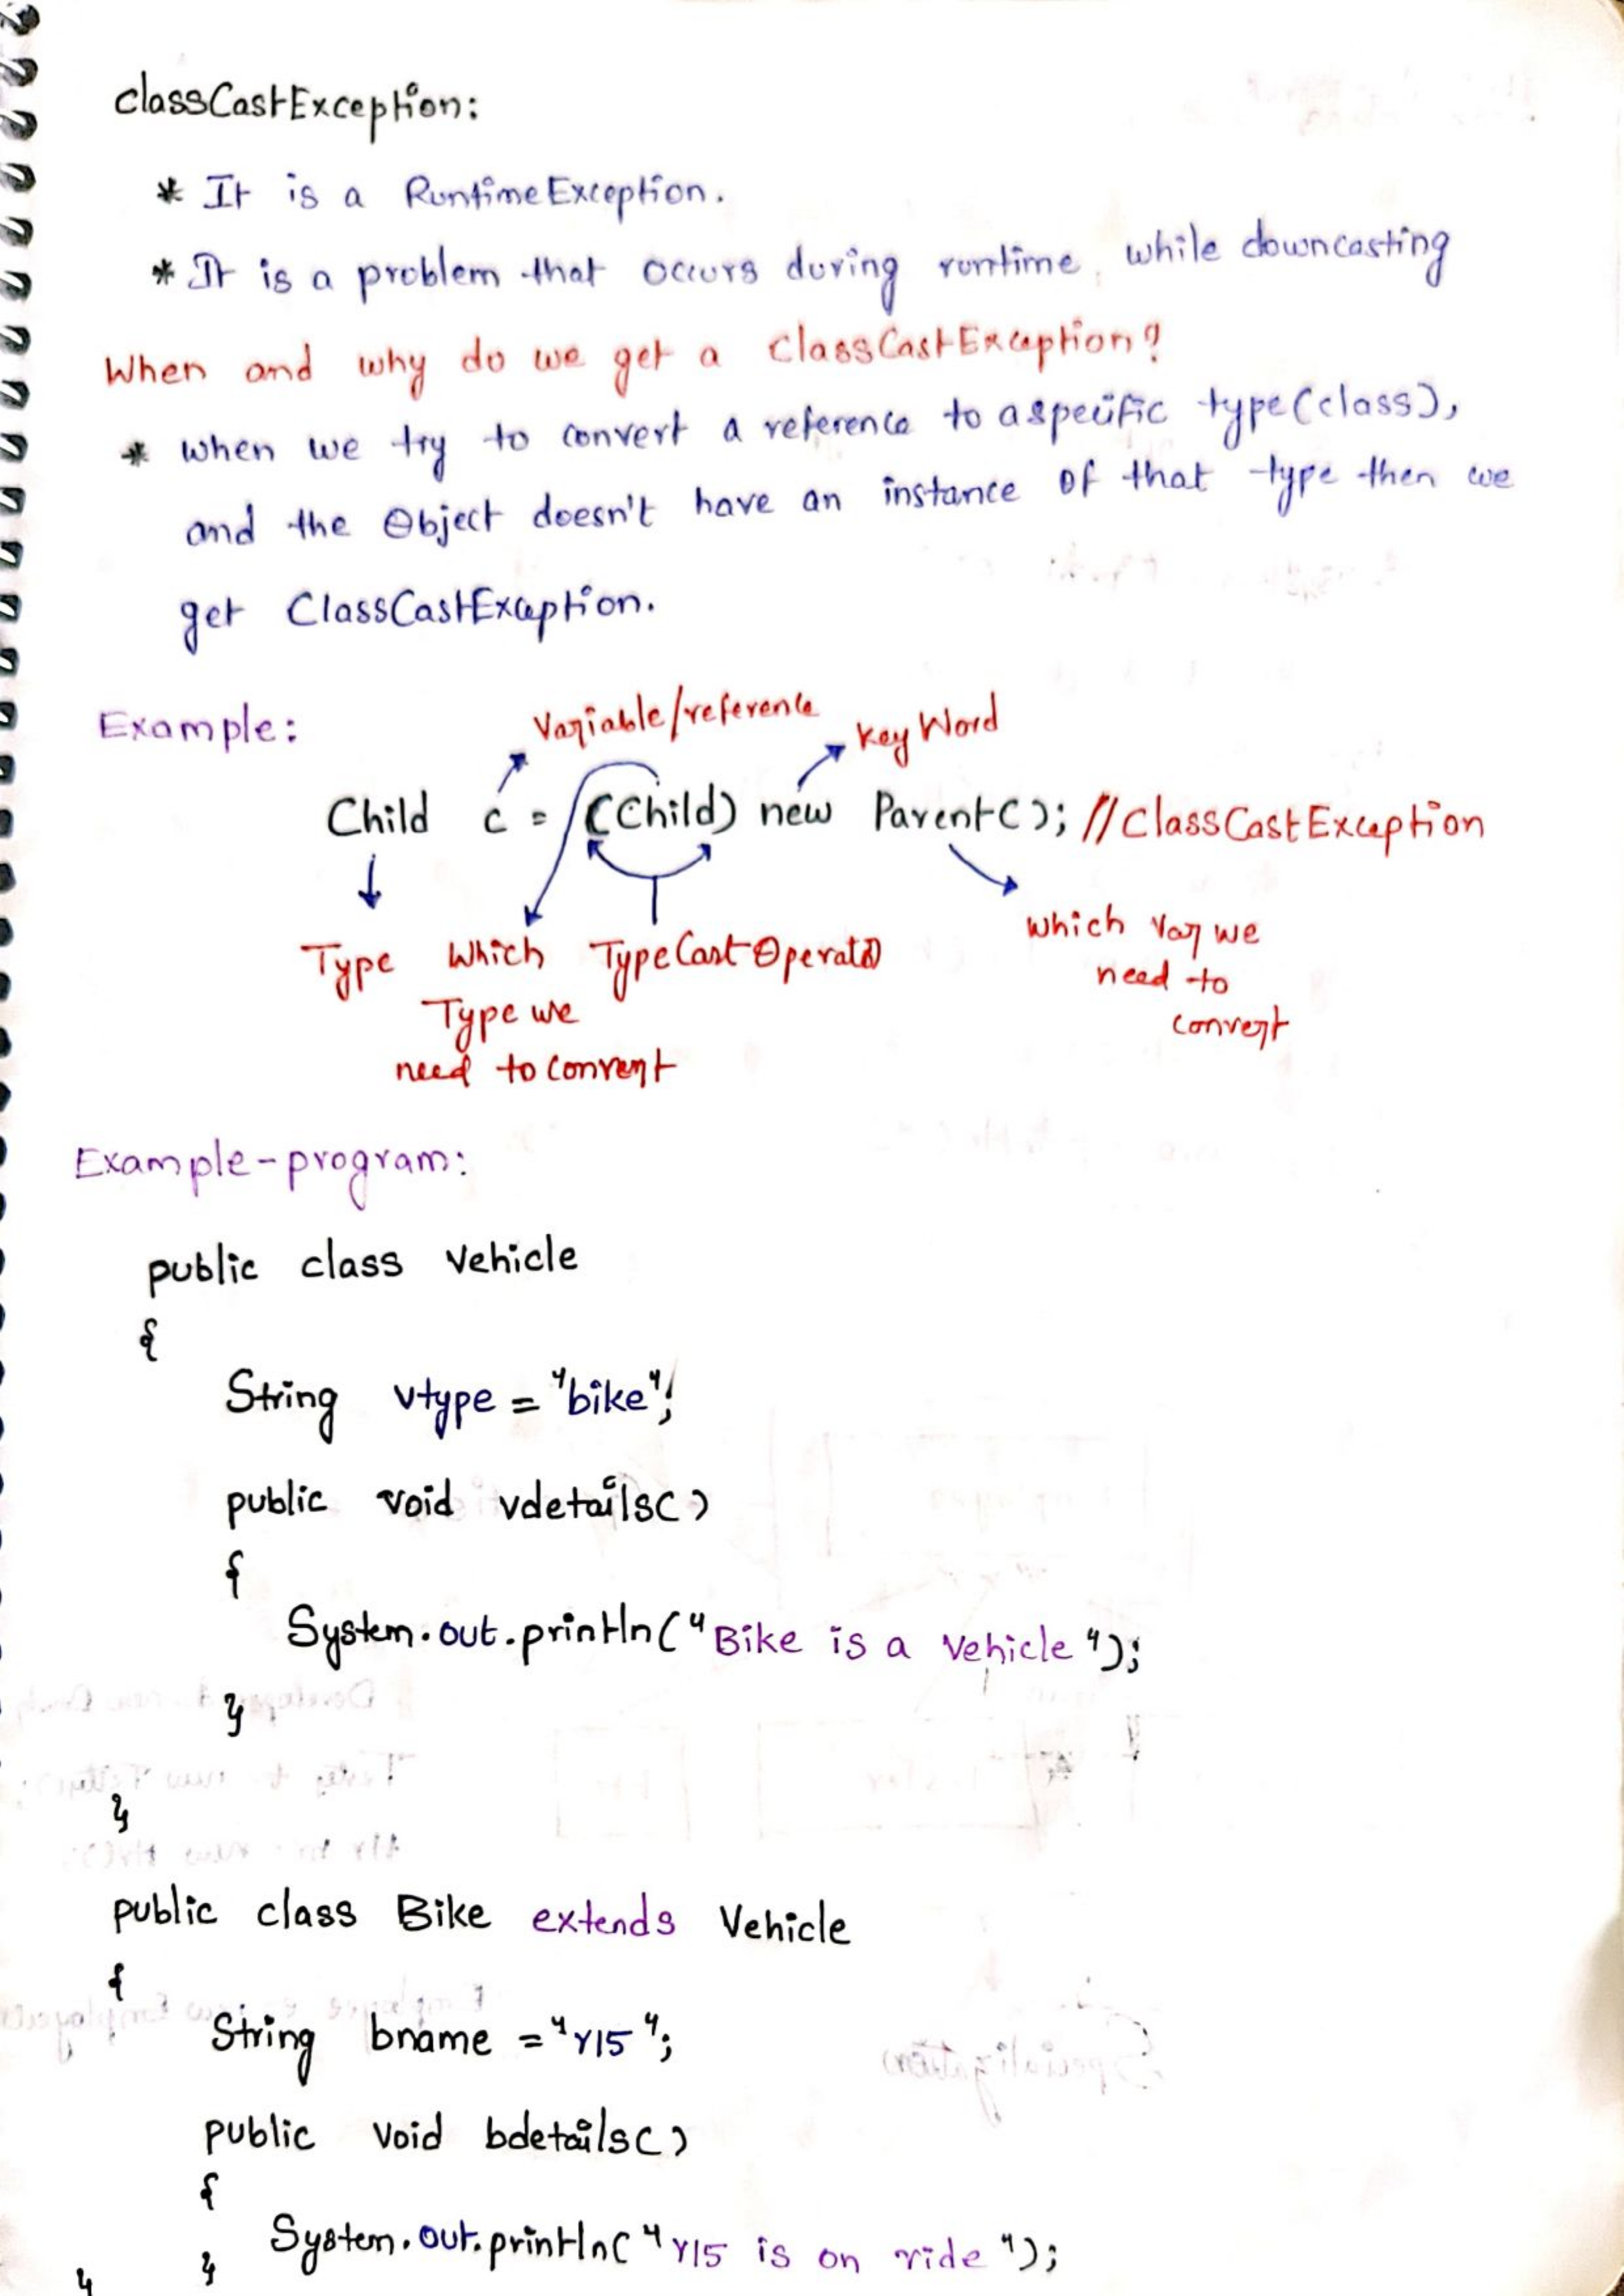 classCastException:
* It is a RuntimeException.
* It is a problem that occurs during runtime, while downcasting
When and why do we get a ClassCastException?
* when we try to convert a reference to a specific type(class),
and the Object doesn't have an instance of that type then we
get ClassCastException.
Example:
Variable/reference
Key Word
Child c = (Child) new Parent(); //ClassCastException
Type
Which Type we need to convert
TypeCast Operator
which var we need to convert
Example-program:
public class Vehicle
{
String vtype = "bike";
public void vdetails()
{
System.out.println("Bike is a Vehicle");
}
}
public class Bike extends Vehicle
{
String bname = "r15";
public void bdetails()
{
System.out.println("r15 is on ride");
}
}